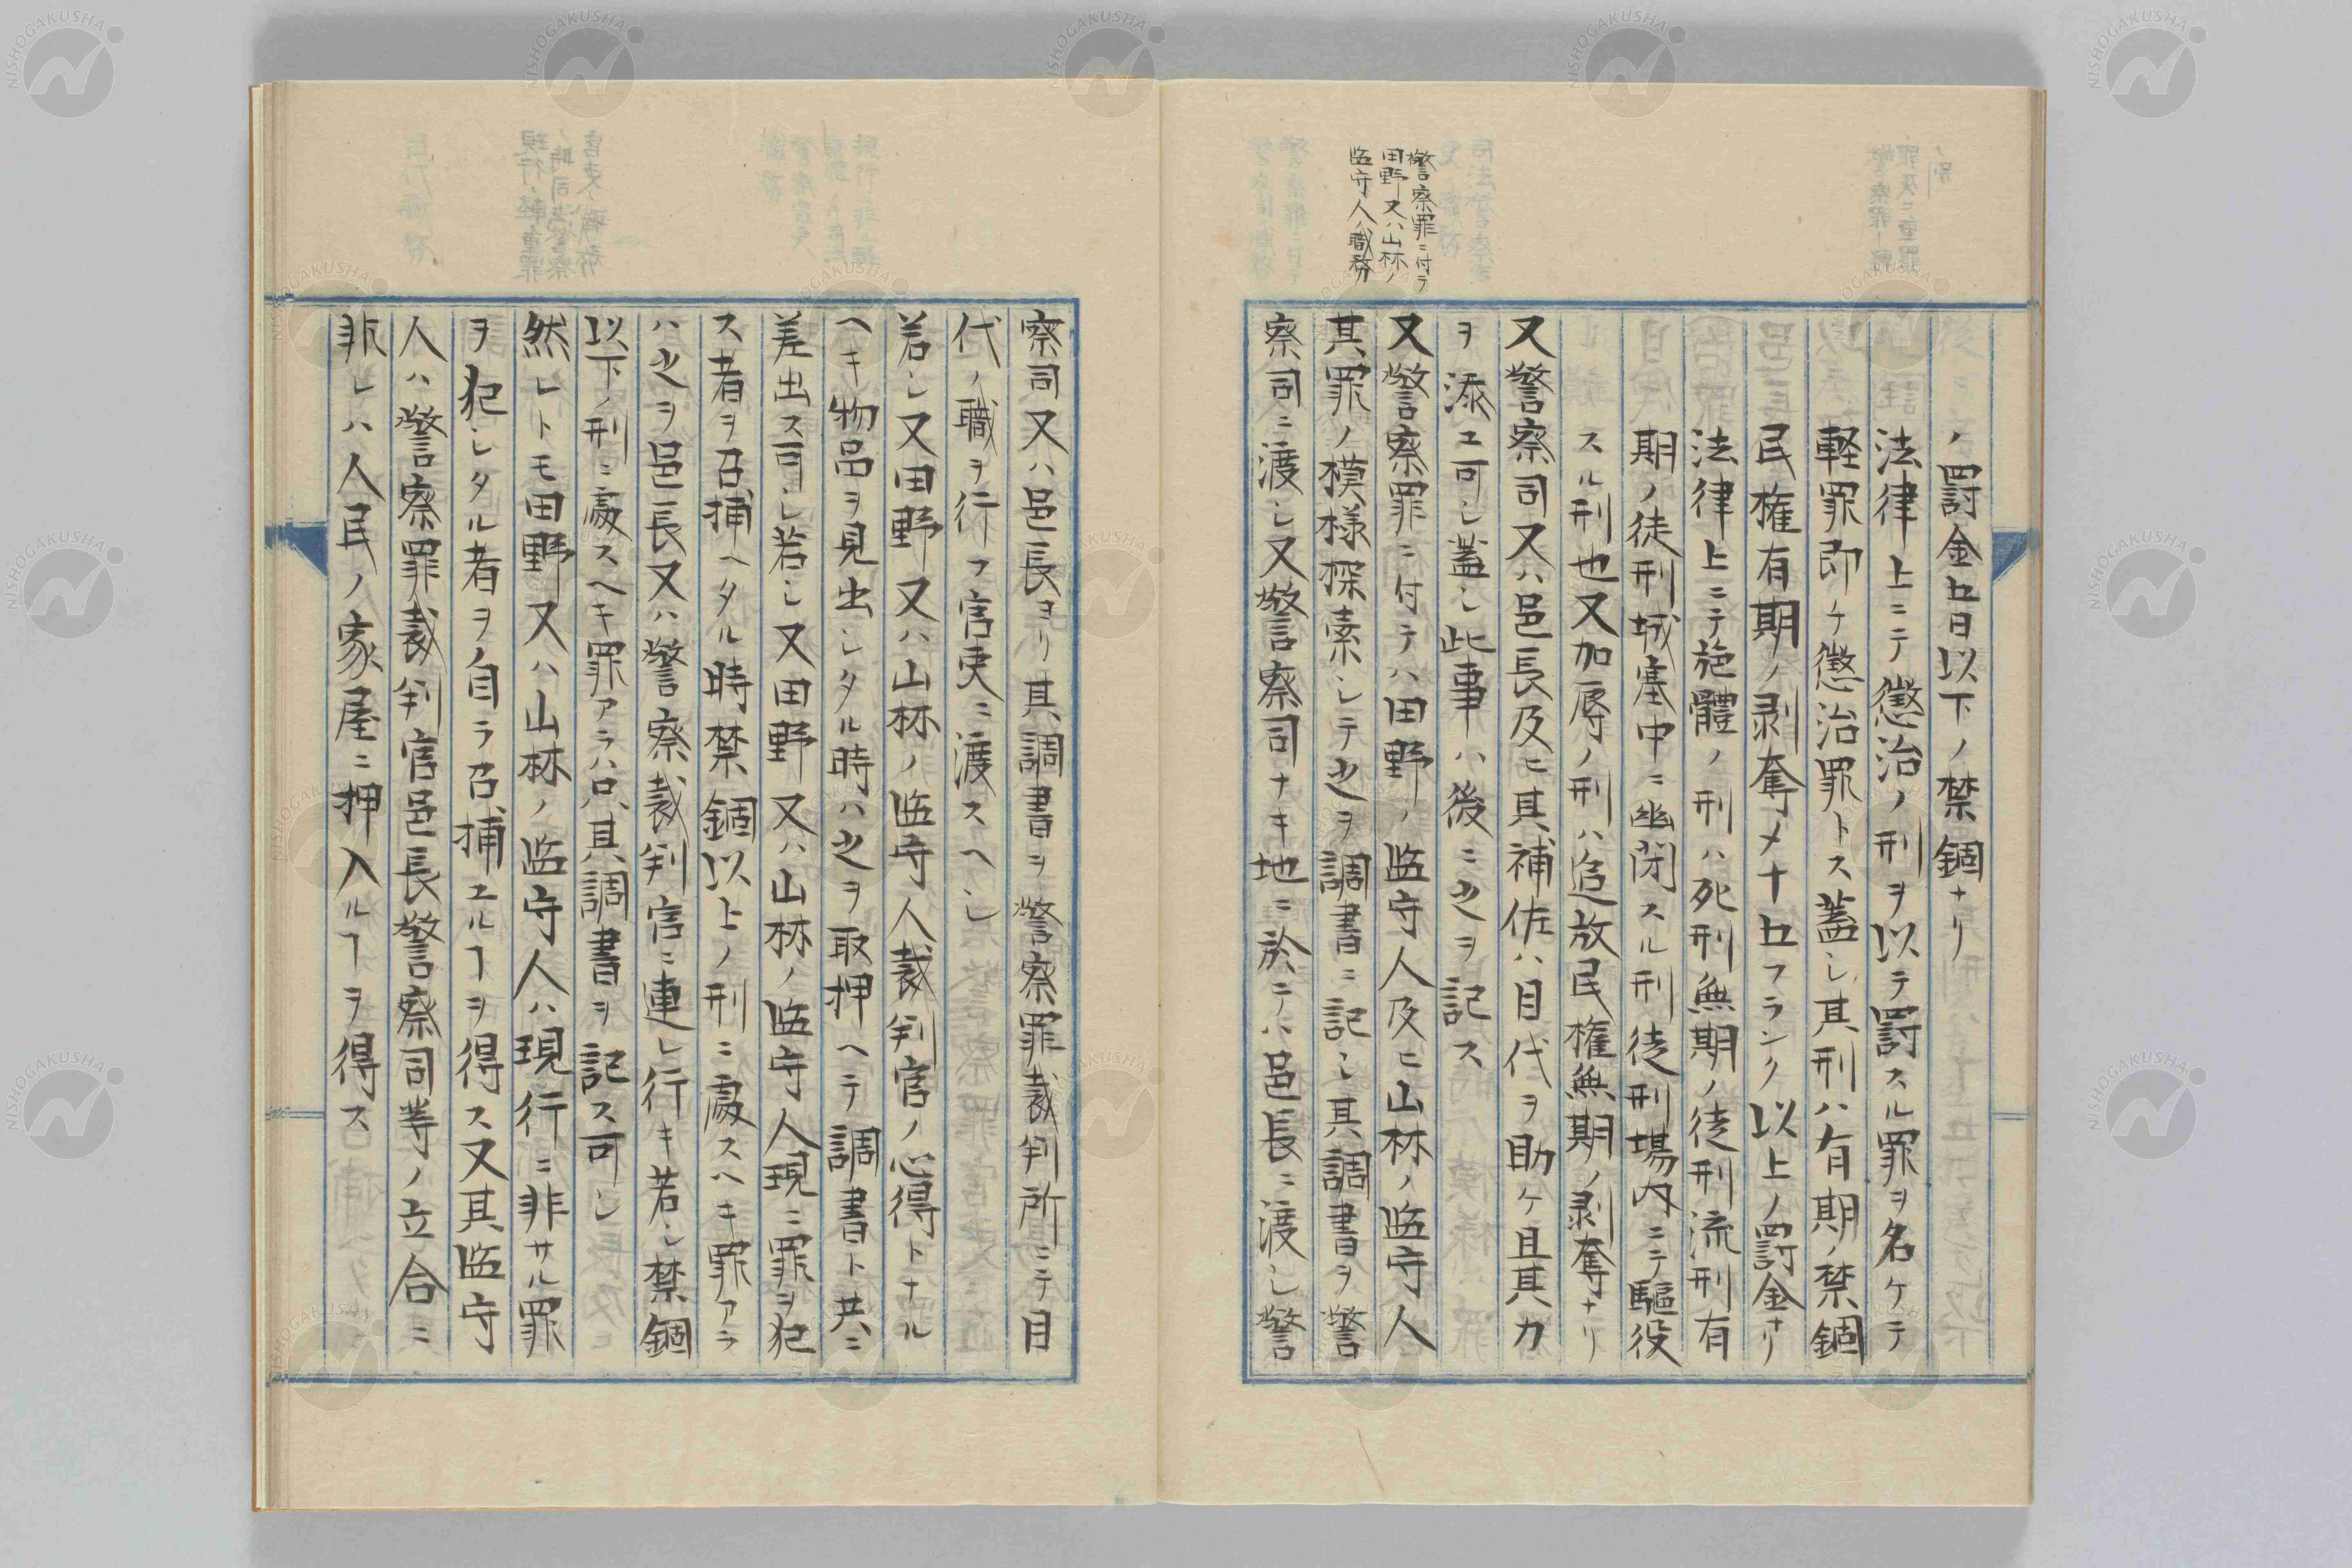 警察罪ニ付テ
田野又ハ山林ノ
監守人ノ職務
ノ罰金五日以下ノ禁錮ナリ
法律上ニテ懲治ノ刑ヲ以テ罰スル罪ヲ名ケテ
軽罪即チ懲治罪トス蓋シ其刑ハ有期ノ禁錮
民権有期ノ剥奪メ十五フランク以上ノ罰金ナリ
法律上ニテ施體ノ刑ハ死刑無期ノ徒刑流刑有
期ノ徒刑城塞中ニ幽閉スル刑徒刑場内ニテ駆役
スル刑也又加辱ノ刑ハ追放民権無期ノ剥奪ナリ
又警察司又ハ邑長及ヒ其補佐ハ目代ヲ助ケ且其力
ヲ添エ可シ蓋シ此事ハ後ニ之ヲ記ス
又警察罪ニ付テハ田野ノ監守人及ヒ山林ノ監守人
其罪ノ模様探索シテ之ヲ調書ニ記シ其調書ヲ警
察司ニ渡シ又警察司ナキ地ニ於テハ邑長ニ渡シ警
察司又ハ邑長ヨリ其調書ヲ警察罪裁判所ニテ目
代ノ職ヲ行フ官吏ニ渡スヘシ
若シ又田野又ハ山林ノ監守人裁判官ノ心得トナル
ヘキ物品ヲ見出シタル時ハ之ヲ取押ヘテ調書ト共ニ
差出ス可シ若シ又田野又ハ山林ノ監守人現ニ罪ヲ犯
ス者ヲ召捕ヘタル時禁錮以上ノ刑ニ處スヘキ罪アラ
ハ之ヲ邑長又ハ警察裁判官ニ連レ行キ若シ禁錮
以下ノ刑ニ處スヘキ罪アラハ只其調書ヲ記ス可シ
然レトモ田野又ハ山林ノ監守人ハ現行ニ非サル罪
ヲ犯シタル者ヲ自ラ召捕エルヿヲ得ス又其監守
人ハ警察罪裁判官邑長警察司等ノ立合ニ
非レハ人民ノ家屋ニ押入ルヿヲ得ス
NISHOGAKUSHA